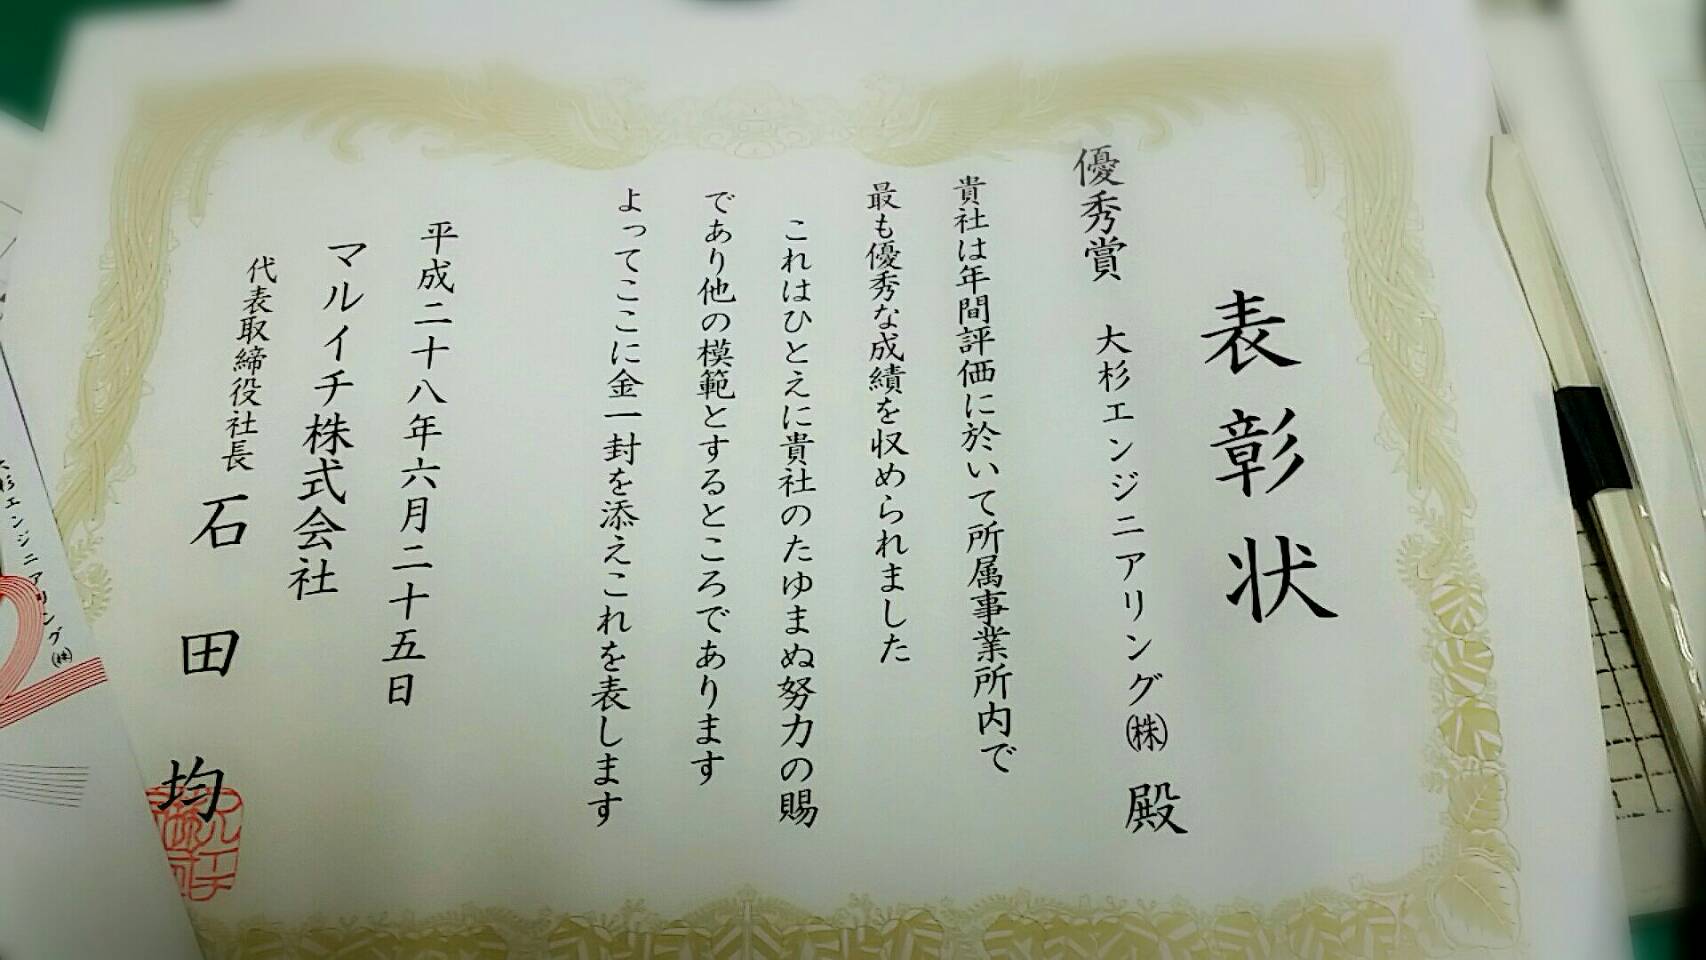 表彰状
優秀賞 大杉エンジニアリング㈱ 殿
貴社は年間評価に於いて所属事業所内で
最も優秀な成績を収められました
これはひとえに貴社のたゆまぬ努力の賜
であり他の模範とするところであります
よってここに金一封を添えこれを表します
平成二十八年六月二十五日
マルイチ株式会社
代表取締役社長 石田 均
大杉エンジニアリング㈱